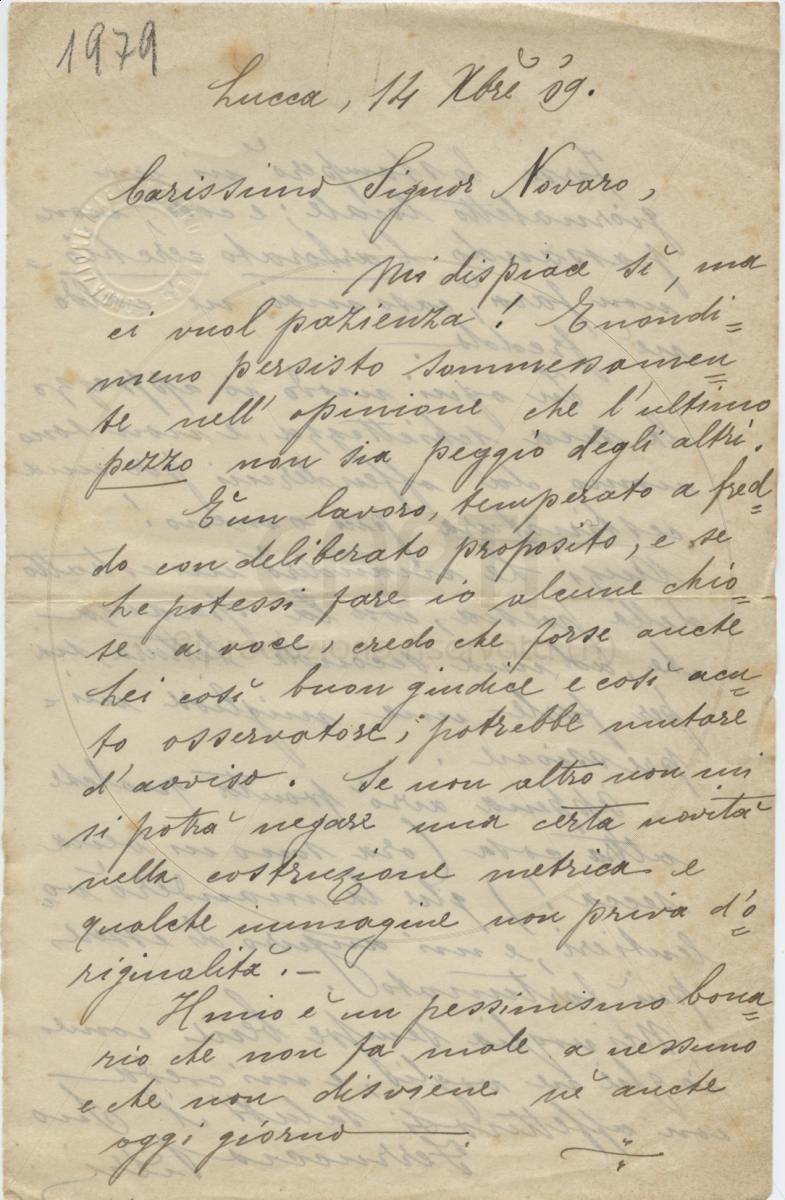 1979
Lucca, 14 Xbre 09.
Carissimo Signor Novaro,
Mi dispiace sì, ma
ci vuol pazienza! E nondi=
meno persisto sommessamen=
te nell' opinione che l'ultimo
pezzo non sia peggio degli altri.
È un lavoro, temperato a fred=
do con deliberato proposito, e se
Le potessi fare io alcune chio=
se a voce, credo che forse anche
Lei così buon giudice e così acu=
to osservatore, potrebbe mutare
d'avviso. Se non altro non mi
si potrà negare una certa novità
nella costruzione metrica e
qualche immagine non priva d'o=
riginalità.—
Il mio è un pessimismo bona=
rio che non fa male a nessuno
e che non disviene nè anche
oggi giorno